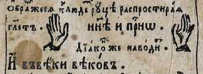 ѡбражаѧ к̾ люде рꙋцѣ распростираѧ
глетъ. ннѣ и прнѡ.
Дїако же наводи.
И въвѣки вѣковъ.